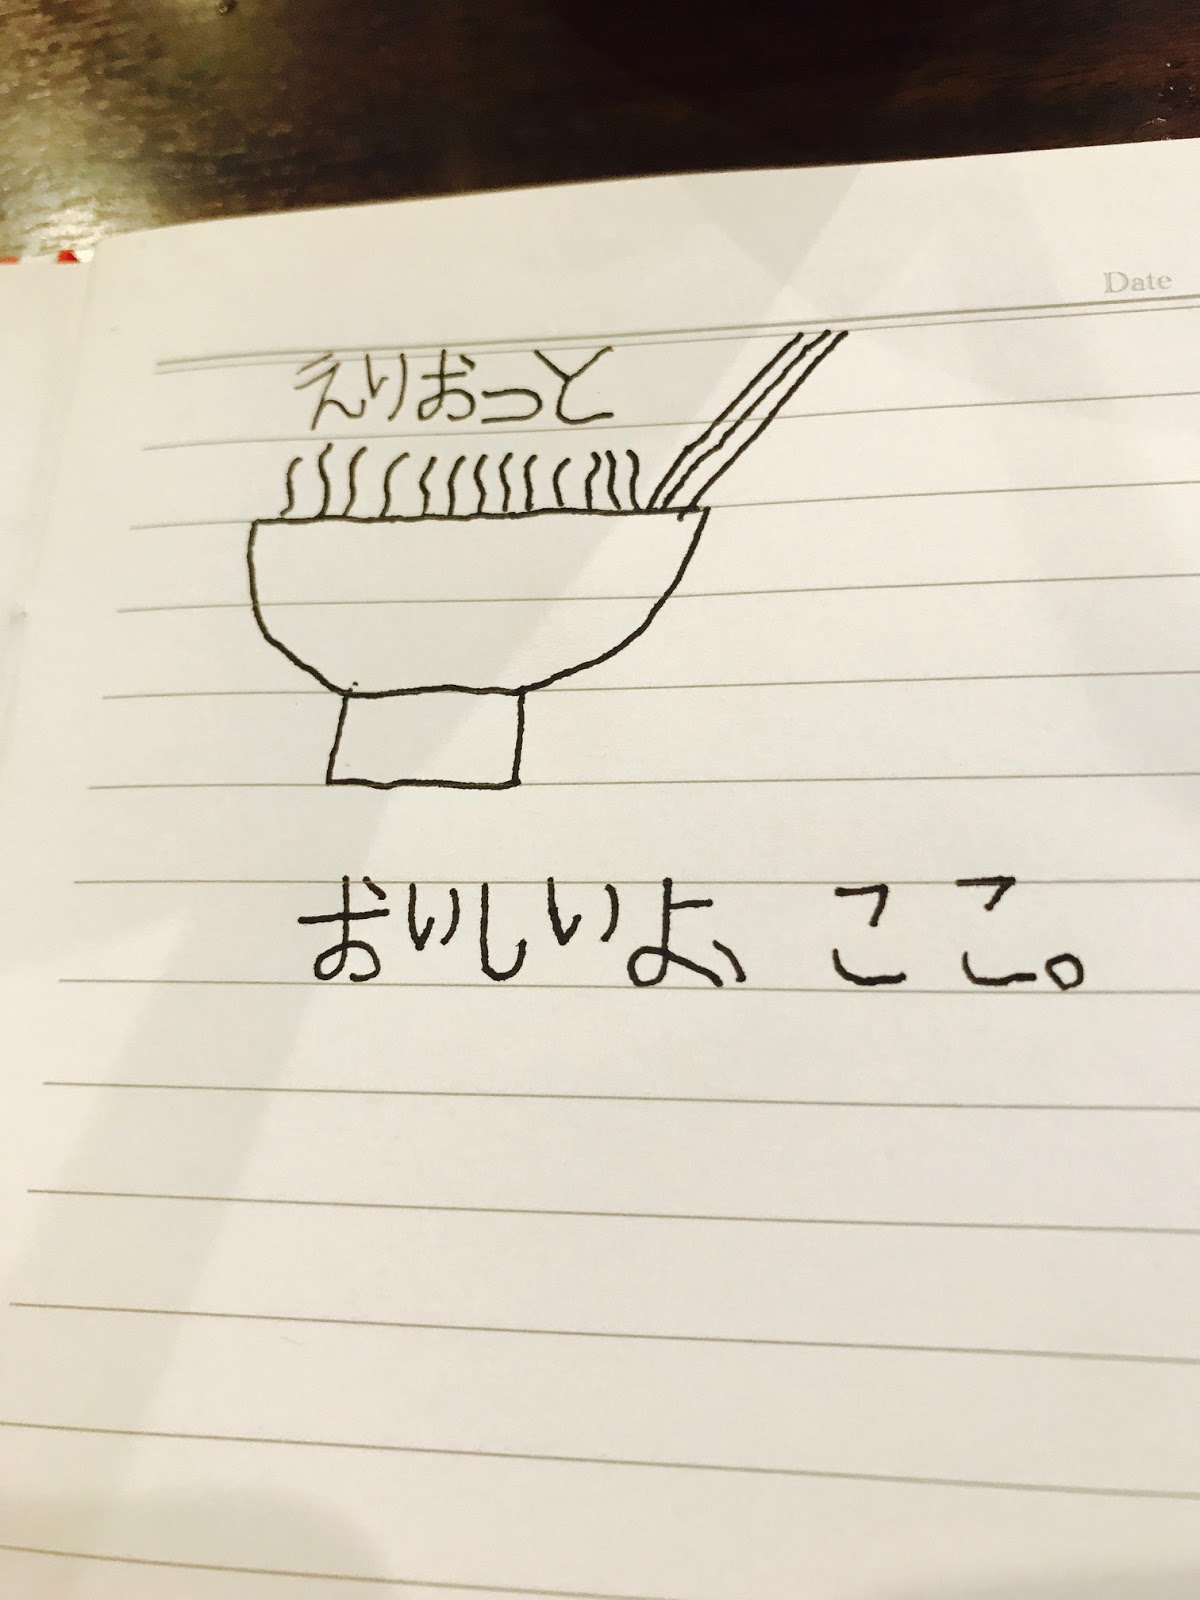 Date
えりおっと
おいしいよ、ここ。